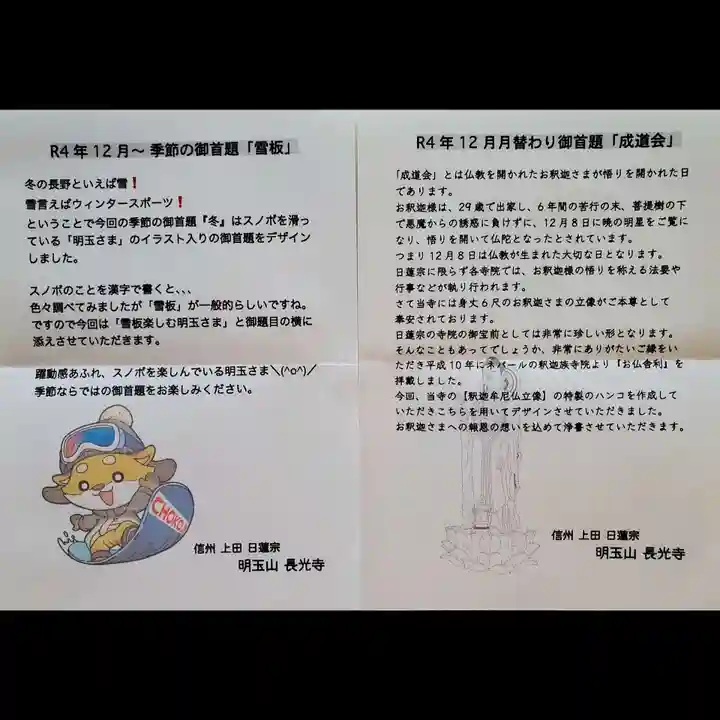 R4年12月～季節の御首題「雪板」
冬の長野といえば雪❗
雪言えばウィンタースポーツ❗
ということで今回の季節の御首題『冬』はスノボを滑っ
ている「明玉さま」のイラスト入りの御首題をデザイン
しました。
スノボのことを漢字で書くと、、、
色々調べてみましたが「雪板」が一般的らしいですね。
ですので今回は「雪板楽しむ明玉さま」と御題目の横に
添えさせていただきます。
躍動感あふれ、スノボを楽しんでいる明玉さま＼(^o^)／
季節ならではの御首題をお楽しみください。
CHOKO
信州 上田 日蓮宗
明玉山 長光寺
R4年12月月替わり御首題「成道会」
「成道会」とは仏教を開かれたお釈迦さまが悟りを開かれた日
であります。
お釈迦様は、29歳で出家し、6年間の苦行の末、菩提樹の下
で悪魔からの誘惑に負けずに、12月8日に暁の明星をご覧に
なり、悟りを開いて仏陀となったとされています。
つまり12月8日は仏教が生まれた大切な日となります。
日蓮宗に限らず各寺院では、お釈迦様の悟りを称える法要や
行事などが執り行われます。
さて当寺には身丈6尺のお釈迦さまの立像がご本尊として
奉安されております。
日蓮宗の寺院の御宝前としては非常に珍しい形となります。
そんなこともあってでしょうか、非常にありがたいご縁をい
ただき平成10年にネパールの釈迦族寺院より『お仏舎利』を
拝戴しました。
今回、当寺の【釈迦牟尼仏立像】の特製のハンコを作成して
いただきこちらを用いてデザインさせていただきました。
お釈迦さまへの報恩の想いを込めて浄書させていただきます。
信州 上田 日蓮宗
明玉山 長光寺